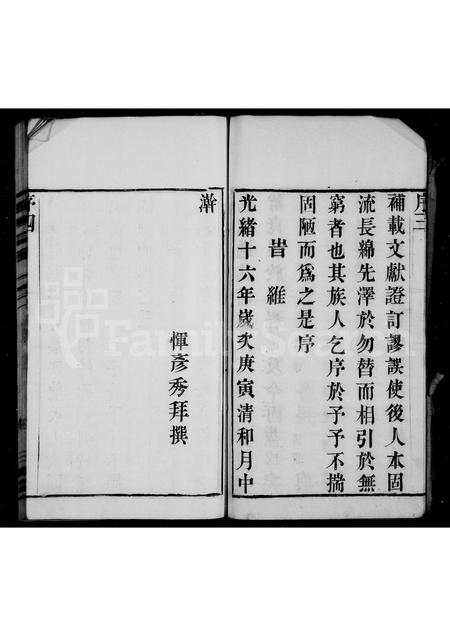 序三
補載文獻證訂謬誤使後人本固
流長綿先澤於勿替而相引於無
窮者也其族人乞序於予予不揣
固陋而爲之是序
旹維
光緒十六年歲次庚寅清和月中
澣
惲彥秀拜撰
序四
FamilySearch